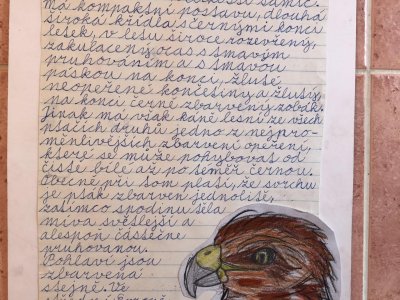 má kompaktní postavu, dlouhá
široká křídla s černými konci
letek, v letu široce rozevřený,
zakulacený ocas s tmavým
pruhováním a s tmavou
páskou na konci, žluté
neopeřené končetiny a žlutý,
na konci černě zbarvený zobák.
Jinak má však káně lesní ze všech
ptačích druhů jedno z nejpro-
měnlivějších zbarvení opeření,
které se může pohybovat od
čistě bílé až po téměř černou.
Obecně při tom platí, že svrchu
je pták zbarven jednolitě,
zatímco spodinu těla
mívá světlejší a
alespoň částečně
pruhovanou.
Pohlaví jsou
zbarvena
stejně. Ve
střední Evropě